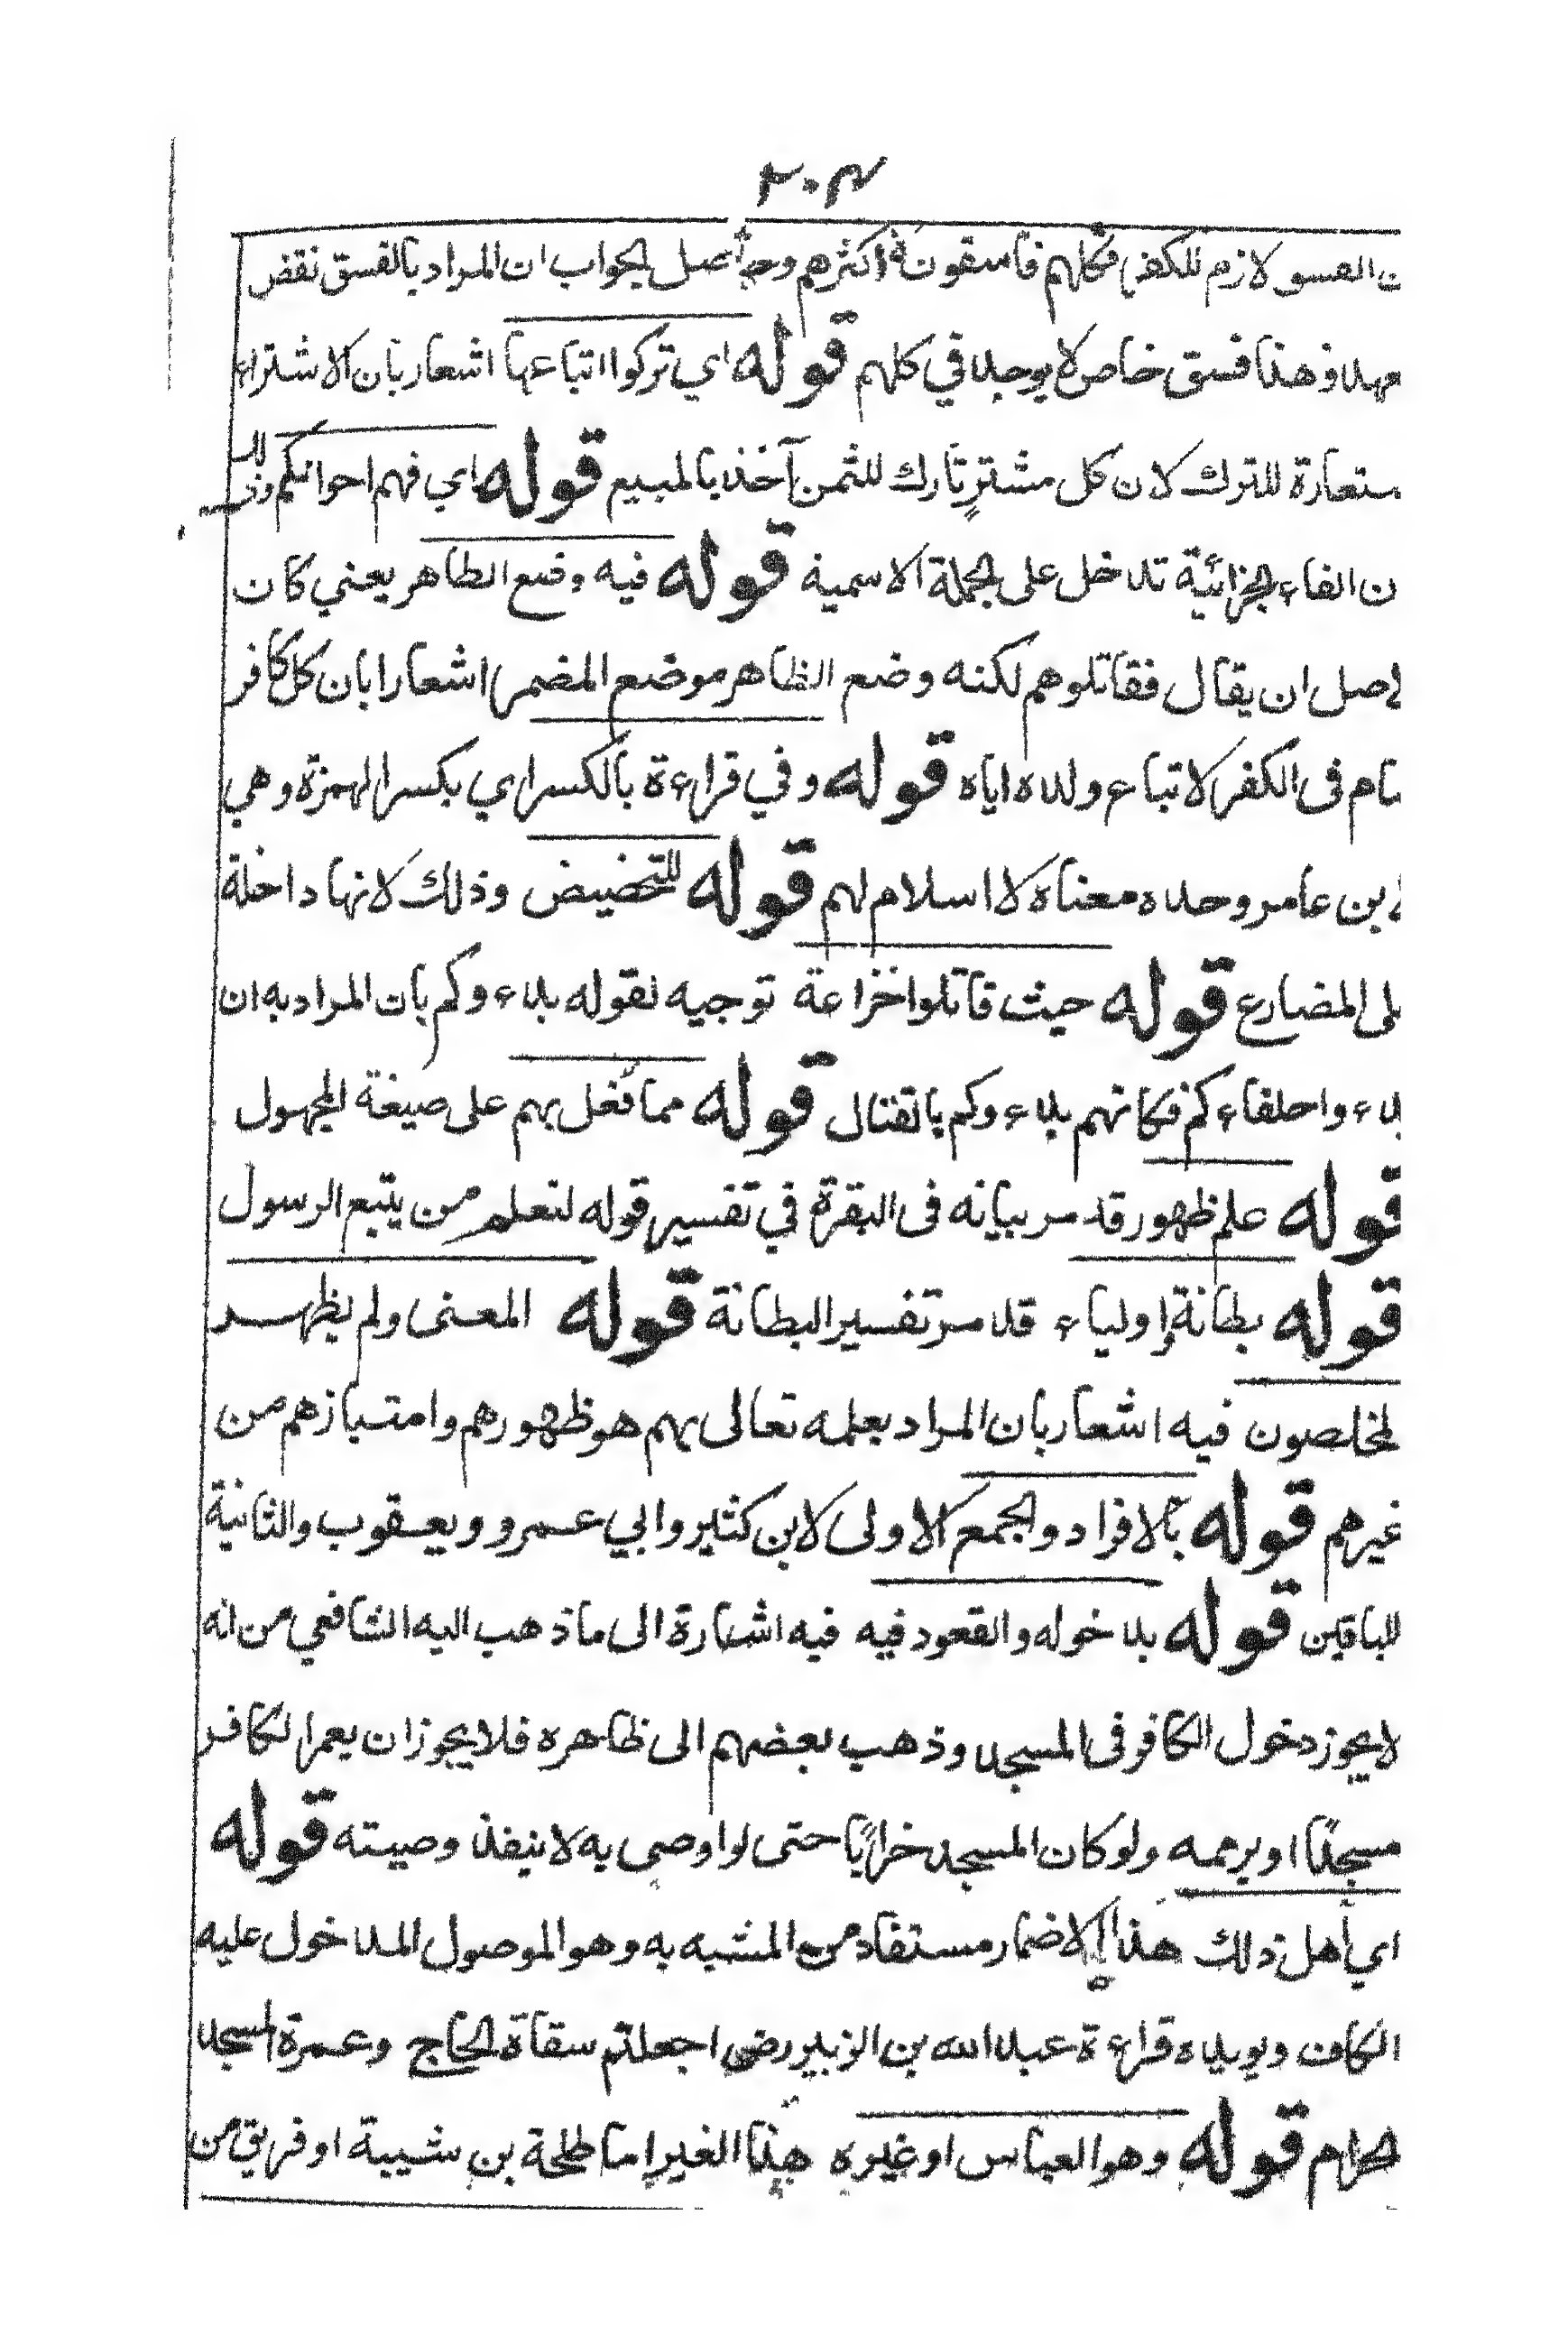 ٣٠٤
ن الفسق لازم للكفر فكلهم فاسقون لا اكثرهم وحاصل الجواب ان المراد بالفسق نقض
عهد وهذا فسق خاص لا يوجد في كلهم قوله اي تركوا اتباعها اشعار بان الاشتراء
ستعارة للترك لان كل مشترٍ تارك للثمن آخذ بالمبيع قوله اي فهم اخوانكم
ن الفاء الجزائية تدخل على الجملة الاسمية قوله فيه وضع الظاهر يعني كان
صل ان يقال فقاتلوهم لكنه وضع الظاهر موضع المضمر اشعارا بان كل كافر
مام فى الكفر لاتباع ولده اياه قوله وفي قراءة بالكسر اي بكسر الهمزة وهي
بن عامر وحده معناه لا اسلام لهم قوله للتحضيض وذلك لانها داخلة
لى المضارع قوله حيث قاتلوا خزاعة توجيه لقوله بدءوكم بان المراد به ان
بدءوا حلفاءكم فكانهم بدءوكم بالقتال قوله مما فعل بهم على صيغة المجهول
قوله علم ظهور قد مر بيانه فى البقرة في تفسير قوله لنعلم من يتبع الرسول
قوله بطانة اولياء قد مر تفسير البطانة قوله المعنى ولم يظهر
لمخلصون فيه اشعار بان المراد بعلمه تعالى بهم هو ظهورهم وامتيازهم من
غيرهم قوله بالافراد والجمع الاولى لابن كثير وابي عمرو ويعقوب والثانية
للباقين قوله بدخوله والقعود فيه فيه اشارة الى ما ذهب اليه الشافعي من انه
لا يجوز دخول الكافر فى المسجد وذهب بعضهم الى ظاهره فلا يجوز ان يعمر الكافر
مسجدًا او يرممه ولو كان المسجد خرابًا حتى لو اوصى به لا ينفذ وصيته قوله
اي أهل ذلك هذا الاضمار مستفاد من المشبه به وهو الموصول المدخول عليه
الكاف ويويده قراءة عبد الله بن الزبير رضي اجعلتم سقاة الحاج وعمرة المسجد
الحرام قوله وهو العباس او غيره هذا الغير اما طلحة بن شيبة او فريق من